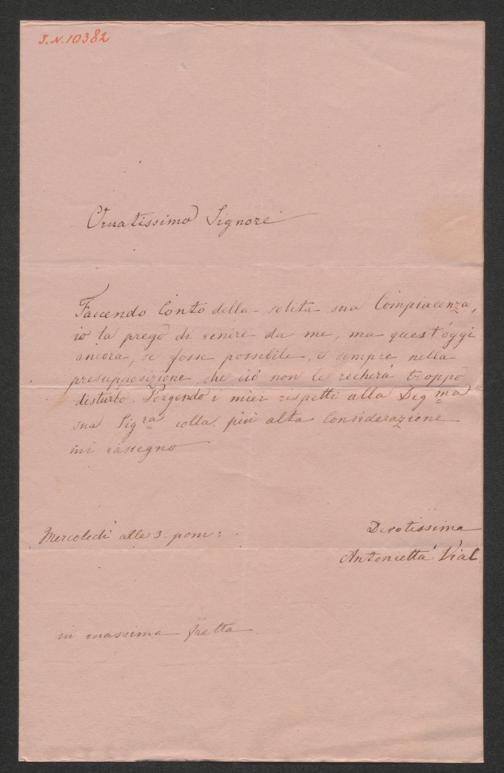 I.N. 10382
Ornatissimo Signore
Faccendo Conto della solita sua Compiacenza,
io la prego di venire da me, ma quest'oggi
ancora, se fosse possibile, e sempre nella
presupposizione che ciò non le recherà troppo
disturbo. Porgendo i miei rispetti alla Sigma
sua Sigra colla più alta Considerazione
mi rassegno
Mercoledì alle 3. pom:
Devotissima
Antonietta Vial
in massima fretta